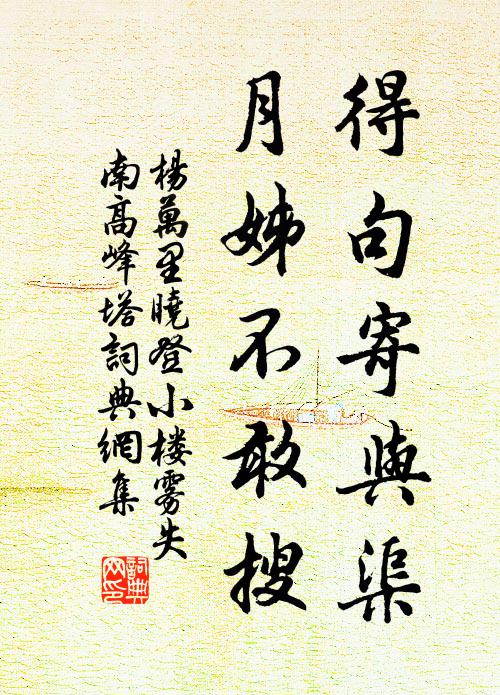 得句寄與渠
月姊不敢搜
楊萬里曉登小楼雾失
南高峰塔詞典網集
詞典网印